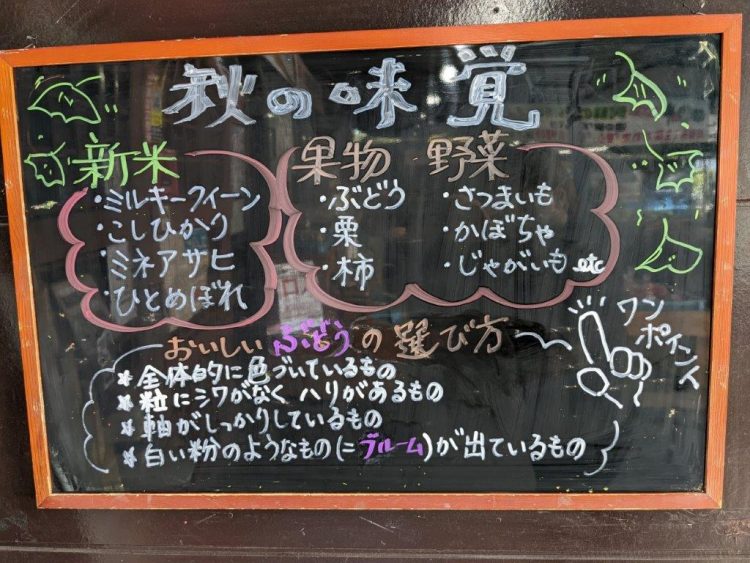 秋の味覚
新米
・ミルキークイーン
・こしひかり
・ミネアサヒ
・ひとめぼれ
果物
・ぶどう
・栗
・柿
野菜
・さつまいも
・かぼちゃ
・じゃがいも etc
おいしい ぶどう の 選び方
ワン
ポイント
* 全体的に色づいているもの
* 粒にシワがなく ハリがあるもの
* 軸がしっかりしているもの
* 白い粉のようなもの(=ブルーム)が出ているもの